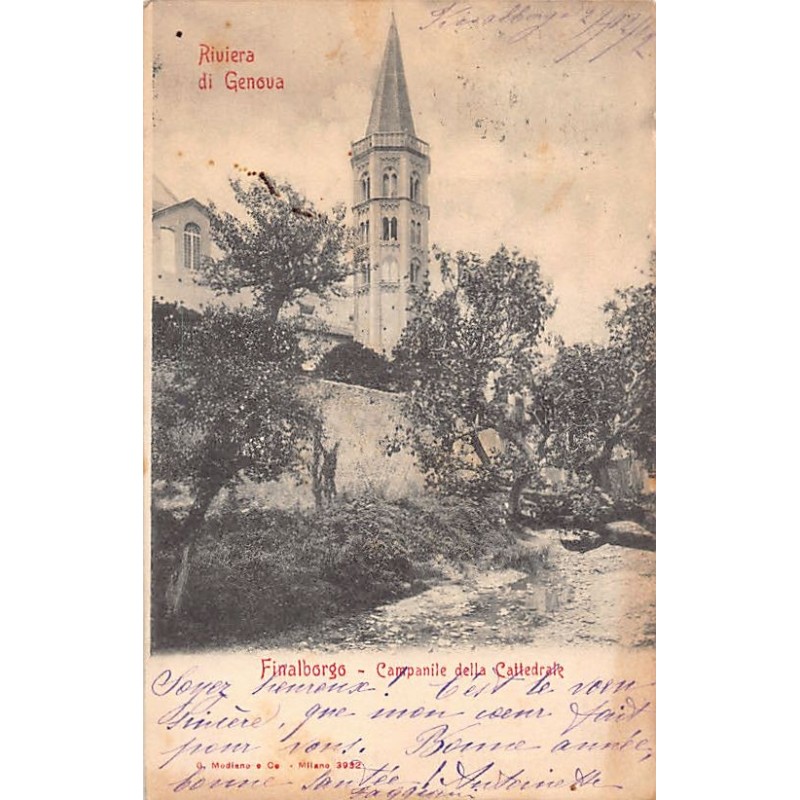 Finalborgo
Riviera
di Genova
Finalborgo - Campanile della Cattedrale
Soyez heureux! C'est le voeu
sincère, que mon coeur fait
pour vous. Bonne année,
G. Modiano e Co. - Milano 3932
bonne santée! Antoinette